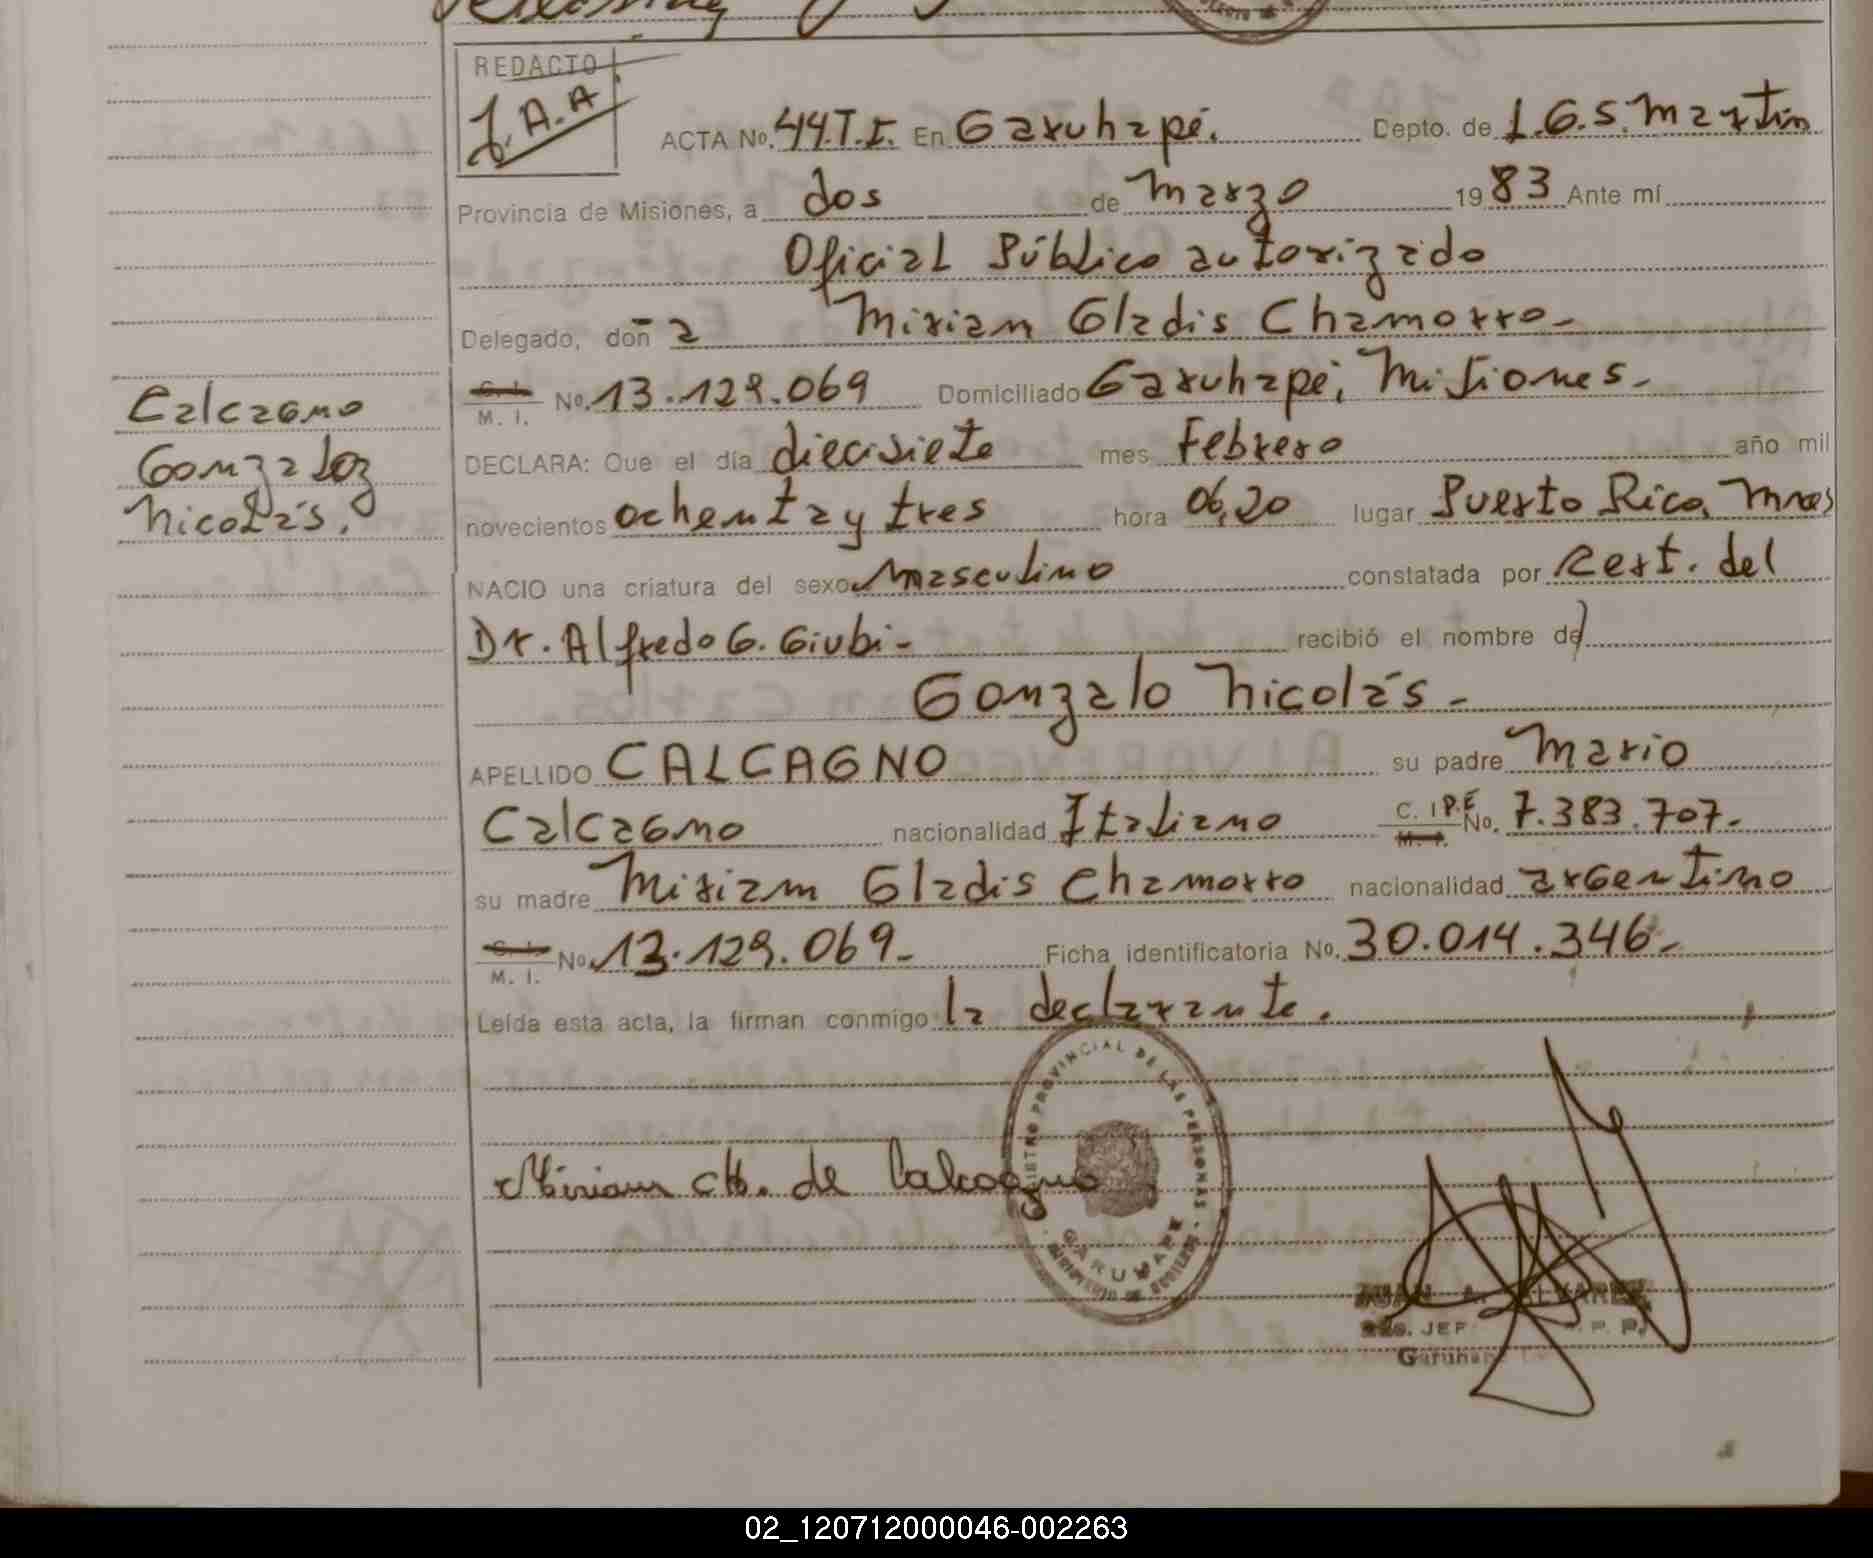 REDACTO
J.A.A
ACTA No. 44.T.I. En Garuhapé. Depto. de L.G.S. Martin
Provincia de Misiones, a dos de Marzo 1983 Ante mí
Oficial Público autorizado
Delegado, doña Miriam Gladis Chamorro-
C. I. M. I. No. 13.129.069 Domiciliado Garuhapé, Misiones-
Calcagno
DECLARA: Que el día diecisiete mes Febrero año mil
Gonzaloz
novecientos ochenta y tres hora 06,20 lugar Puerto Rico, Mnes
Nicolás.
NACIO una criatura del sexo Masculino constatada por Cert. del
Dr. Alfredo G. Giubi- recibió el nombre de
Gonzalo Nicolás-
APELLIDO CALCAGNO su padre Mario
Calcagno nacionalidad Italiano C. I P.E M. I. No. 7.383.707-
su madre Miriam Gladis Chamorro nacionalidad argentino
C. I. M. I. No. 13.129.069- Ficha identificatoria No. 30.014.346-
Leída esta acta, la firman conmigo la declarante.
REGISTRO PROVINCIAL DE LAS PERSONAS
Miriam Ch. de Calcagno
GARUHAPE
JUAN A. ALVAREZ
JEF. P. P.
Garuhape
02_120712000046-002263